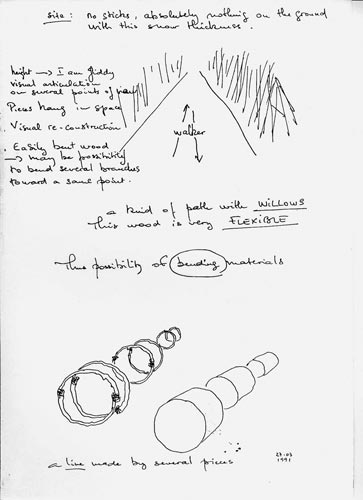 site: no sticks, absolutely nothing on the ground
with this snow thickness.
height → I am giddy
visual articulation
on several points of view
Pieces hang in space
. Visual re-construction
. Easily bent wood
→ may be possibility
to bend several branches
toward a same point.
walker
a kind of path with WILLOWS
This wood is very FLEXIBLE
The possibility of bending materials
27.03
1991
a line made by several pieces